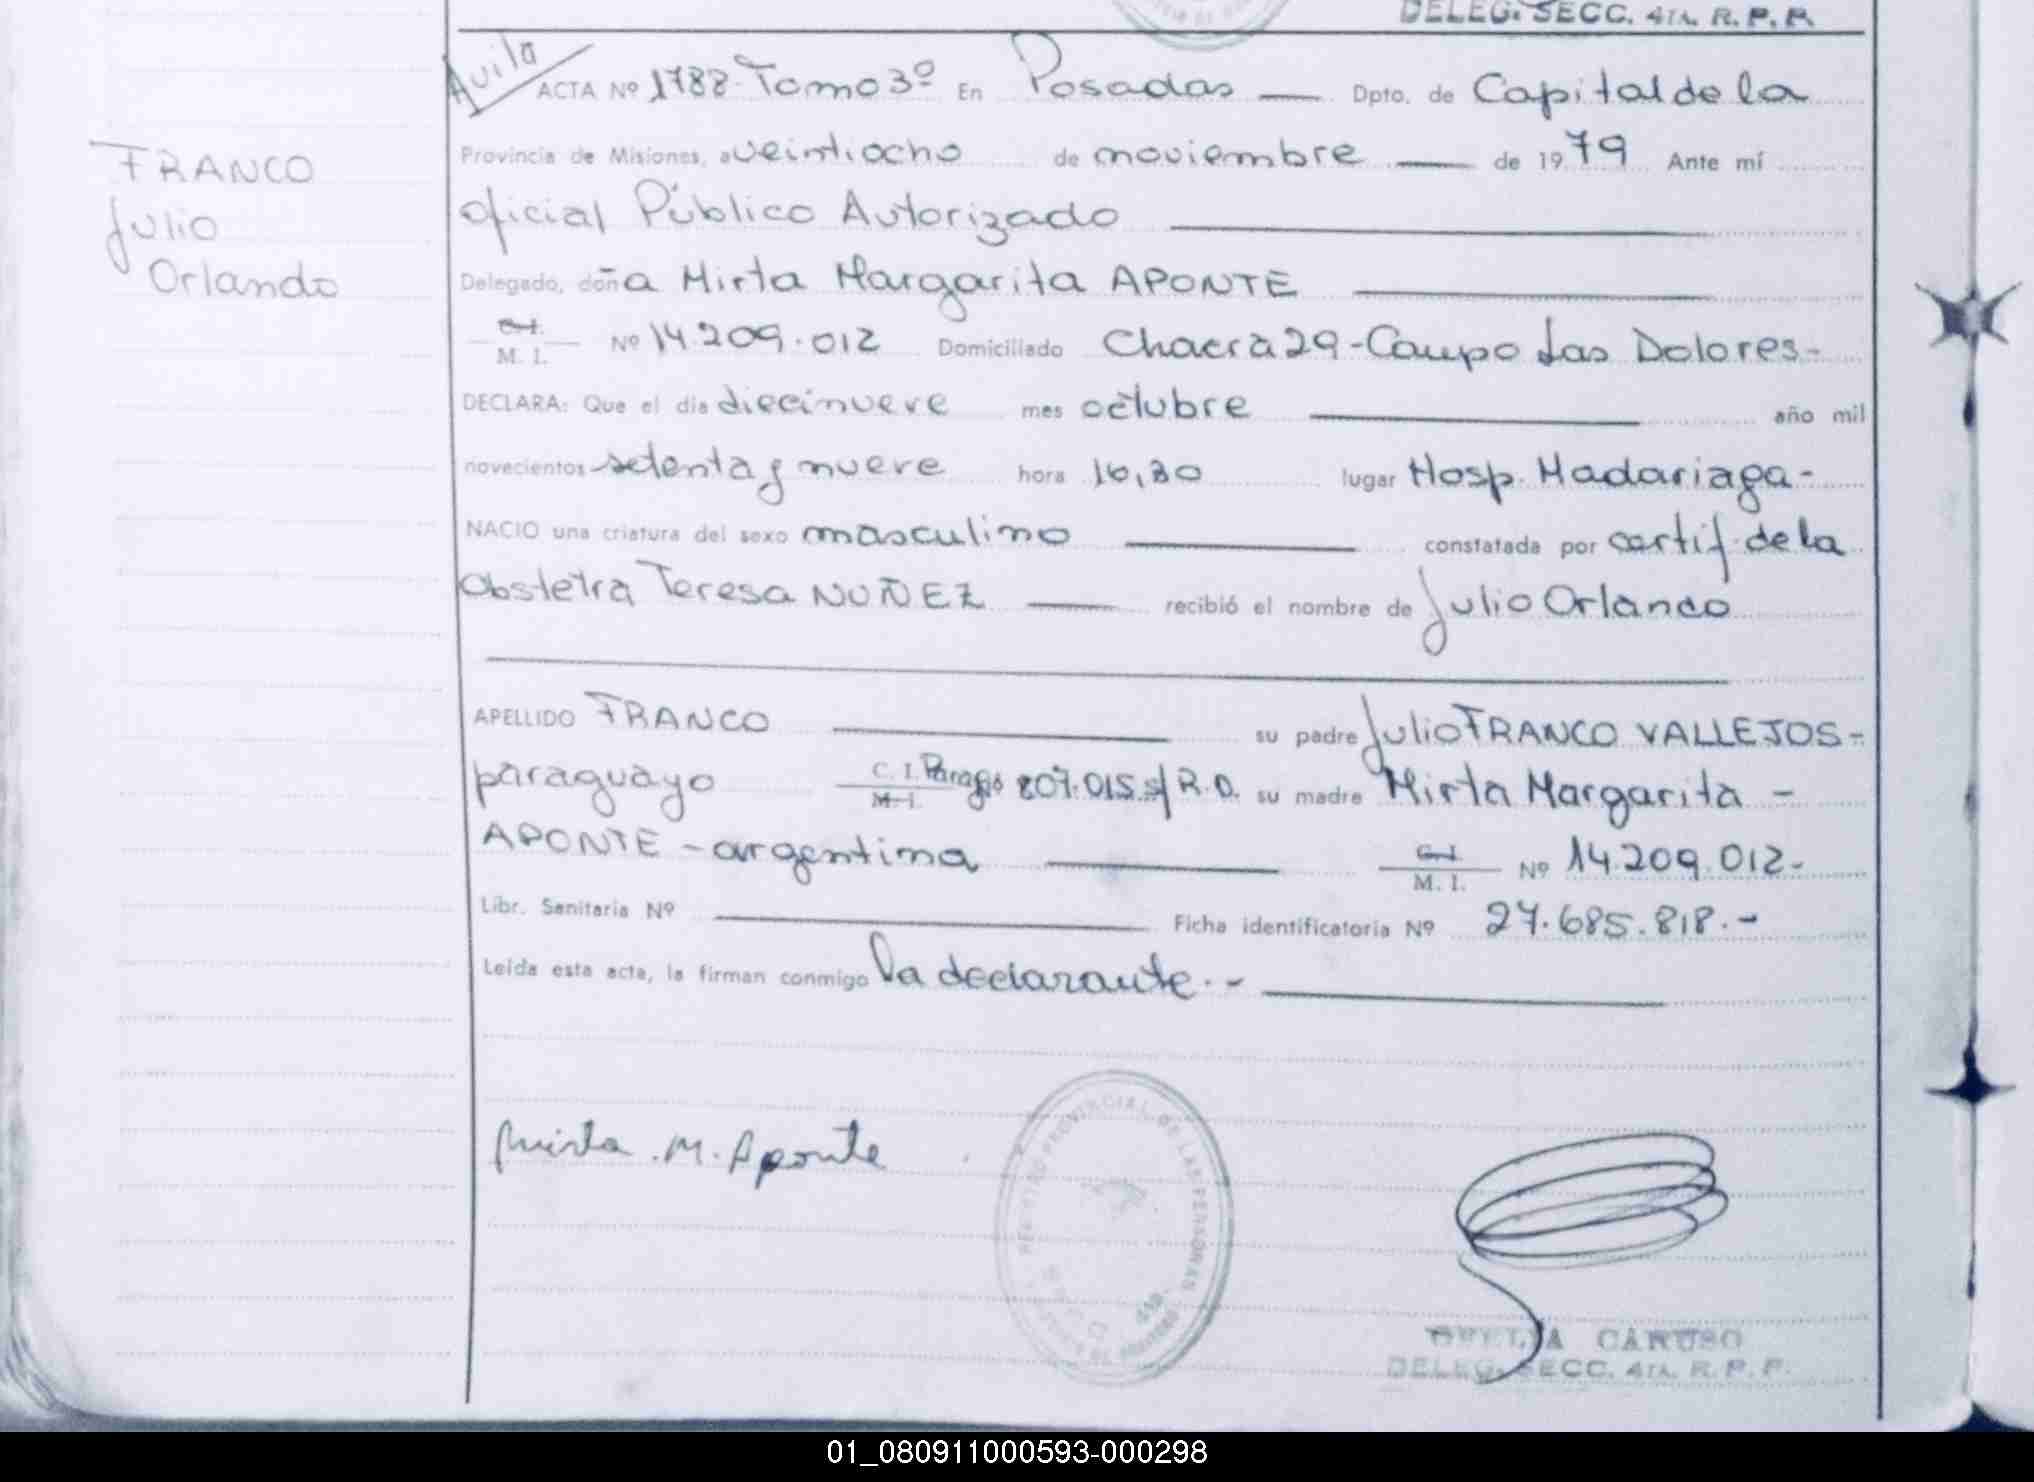 DELEG. SECC. 4TA. R. P. P.
Avila
ACTA Nº 1788-Tomo 3º En Posadas — Dpto. de Capital de la
Provincia de Misiones, a veintiocho de noviembre — de 1979 Ante mí
FRANCO
Julio
Orlando
oficial Público Autorizado
Delegado, doña Mirta Margarita APONTE
C.I.
M. I.
Nº 14.209.012 Domiciliado Chacra 29-Campo Las Dolores-
DECLARA: Que el día diecinueve mes octubre — año mil
novecientos setenta y nueve hora 16,30 lugar Hosp. Madariaga-
NACIO una criatura del sexo masculino — constatada por certif. de la
Obstetra Teresa NUÑEZ — recibió el nombre de Julio Orlando
APELLIDO FRANCO — su padre Julio FRANCO VALLEJOS-
paraguayo C. I. Parag 807.015 s/ R.D. su madre Mirta Margarita -
M. I.
APONTE - argentina — C.I. Nº 14.209.012-
M. I.
Libr. Sanitaria Nº — Ficha identificatoria Nº 27.685.818.-
Leída esta acta, la firman conmigo la declarante.-
Mirta . M. Aponte
REGISTRO PROVINCIAL DE LAS PERSONAS
DELIA CARUSO
DELEG. SECC. 4TA. R. P. P.
01_080911000593-000298